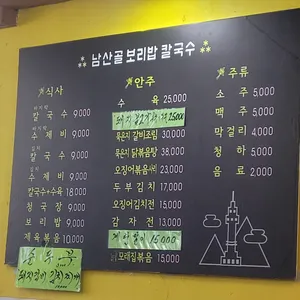 남산골 보리밥 칼국수
식사
칼국수 9,000
수제비 9,000
칼국수 9,000
수제비 9,000
칼국수+수육 18,000
청국장 9,000
보리밥 9,000
제육볶음 10,000
안주
수육 25,000
25,000
묵은지 갈비조림 30,000
묵은지 닭볶음탕 38,000
오징어볶음 23,000
두부김치 17,000
오징어김치전 15,000
감자전 13,000
계란말이 15,000
모래집볶음 15,000
주류
소주 5,000
맥주 5,000
막걸리 4,000
청하 5,000
음료 2,000